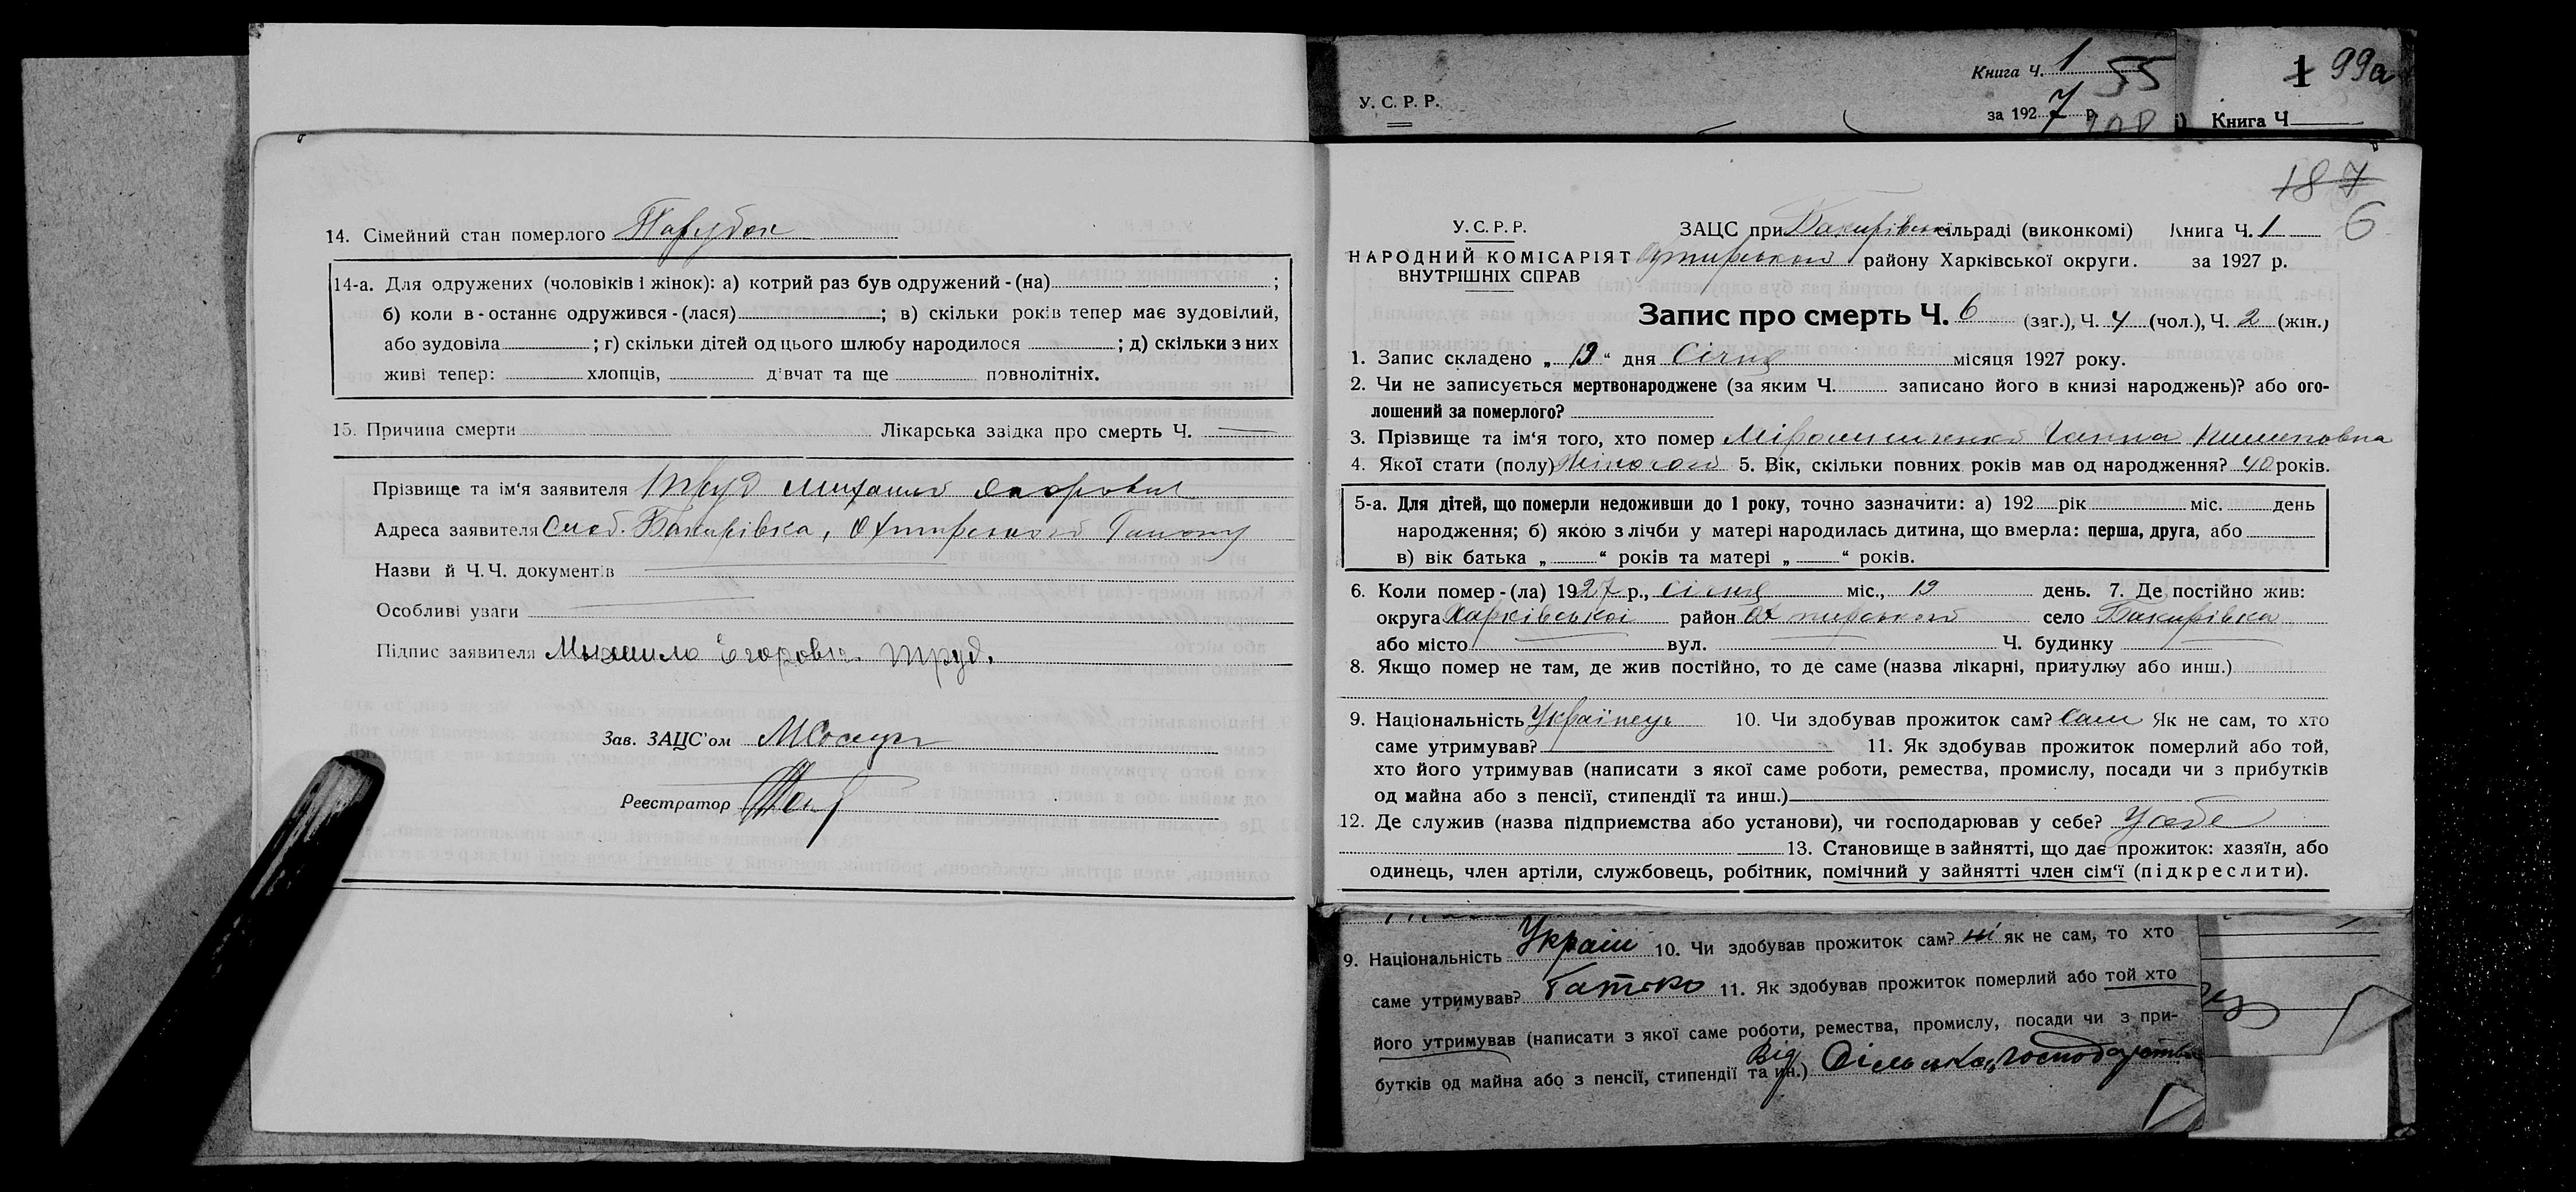 14. Сімейний стан померлого Парубок
14-а. Для одружених (чоловіків і жінок): а) котрий раз був одружений - (на) ;
б) коли в - останнє одружився - (лася) ; в) скільки років тепер має зудовілий,
або зудовіла ; г) скільки дітей од цього шлюбу народилося ; д) скільки з них
живі тепер: хлопців, дівчат та ще повнолітніх.
15. Причина смерти Лікарська звідка про смерть Ч.
Прізвище та ім'я заявителя Труд Михаил
Адреса заявителя Слоб. Бакирівка, Охтирского Району
Назви й Ч.Ч. документів
Особливі уваги
Підпис заявителя Мыхаило Егоровіч Труд.
Зав. ЗАЦС'ом
Реєстратор
Книга Ч. 1 55
У. С. Р. Р.
за 1927 р.
1 99а
Книга Ч
187
6
У. С. Р. Р. ЗАЦС при Бакирівськ сільраді (виконкомі) Книга Ч. 1
НАРОДНИЙ КОМІСАРІЯТ Охтирського району Харківської округи. за 1927 р.
ВНУТРІШНІХ СПРАВ
Запис про смерть Ч. 6 (заг.), Ч. 4 (чол.), Ч. 2 (жін.)
1. Запис складено „ 19 “ дня Січня місяця 1927 року.
2. Чи не записується мертвонароджене (за яким Ч. записано його в книзі народжень)? або ого-
лошений за померлого?
3. Прізвище та ім'я того, хто помер Мірошниченко Ганна
4. Якої стати (полу) Жіночой 5. Вік, скільки повних років мав од народження? 40 років.
5-а. Для дітей, що померли недоживши до 1 року, точно зазначити: а) 192 рік міс. день
народження; б) якою з лічби у матері народилась дитина, що вмерла: перша, друга, або
в) вік батька „ “ років та матері „ “ років.
6. Коли помер - (ла) 1927 р., січня міс., 19 день. 7. Де постійно жив:
округа Харківської район Охтирской село Бакирівка
або місто вул. Ч. будинку
8. Якщо помер не там, де жив постійно, то де саме (назва лікарні, притулку або инш.)
9. Національність Українець 10. Чи здобував прожиток сам? Сам Як не сам, то хто
саме утримував? 11. Як здобував прожиток померлий або той,
хто його утримував (написати з якої саме роботи, ремества, промислу, посади чи з прибутків
од майна або з пенсії, стипендії та инш.)
12. Де служив (назва підприємства або установи), чи господарював у себе? У себе
13. Становище в зайнятті, що дає прожиток: хазяїн, або
одинець, член артіли, службовець, робітник, помічний у зайнятті член сім'ї (підкреслити).
9. Національність Україн 10. Чи здобував прожиток сам? ні як не сам, то хто
саме утримував? батько 11. Як здобував прожиток померлий або той хто
його утримував (написати з якої саме роботи, ремества, промислу, посади чи з при-
бутків од майна або з пенсії, стипендії та ин.) Від Сільська господарства